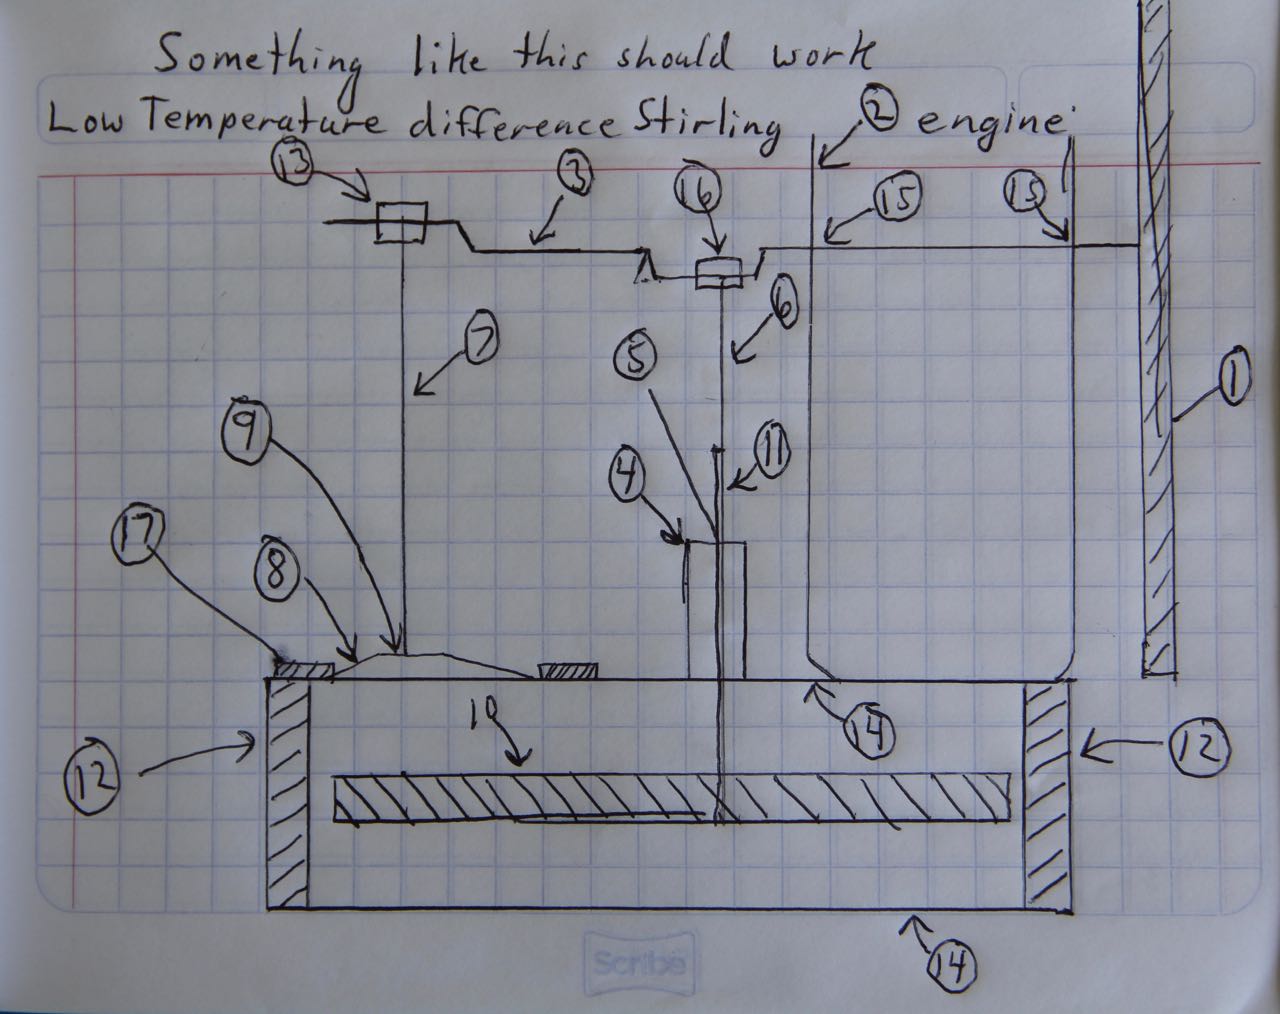 Something like this should work
Low Temperature difference Stirling engine
13
3
16
2
15
15
7
5
6
1
9
4
11
17
8
10
14
12
12
14
Scribe